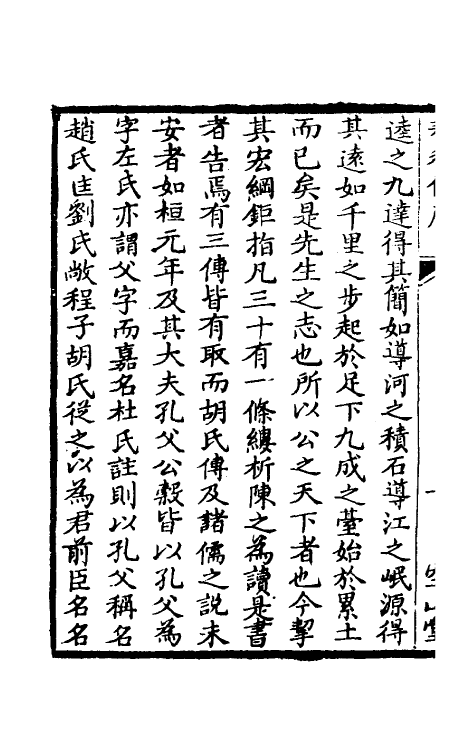 逵之九達得其簡如導河之積石導江之岷源得
其遠如千里之步起於足下九成之臺始於累土
而已矣是先生之志也所以公之天下者也今挈
其宏綱鉅指凡三十有一條縷析陳之為讀是書
者告焉有三傳皆有取而胡氏傳及諸儒之說未
安者如桓元年及其大夫孔父公穀皆以孔父為
字左氏亦謂父字而嘉名杜氏註則以孔父稱名
趙氏匡劉氏敞程子胡氏從之以為君前臣名名